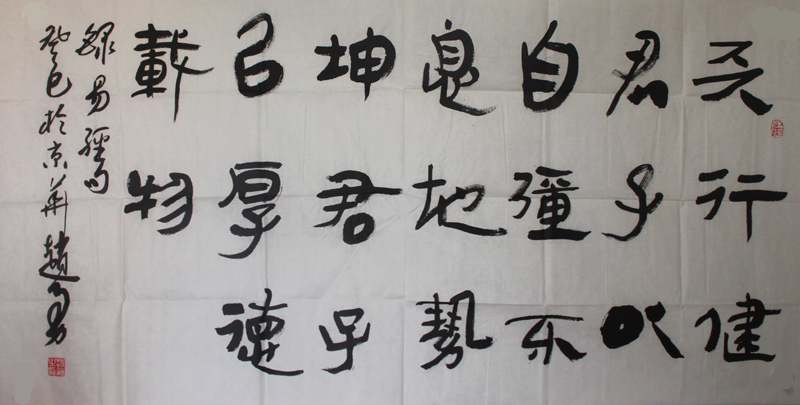 天行健
君子以
自彊不
息地勢
坤君子
以厚德
載物
錄易經句
癸巳於京華趙勇